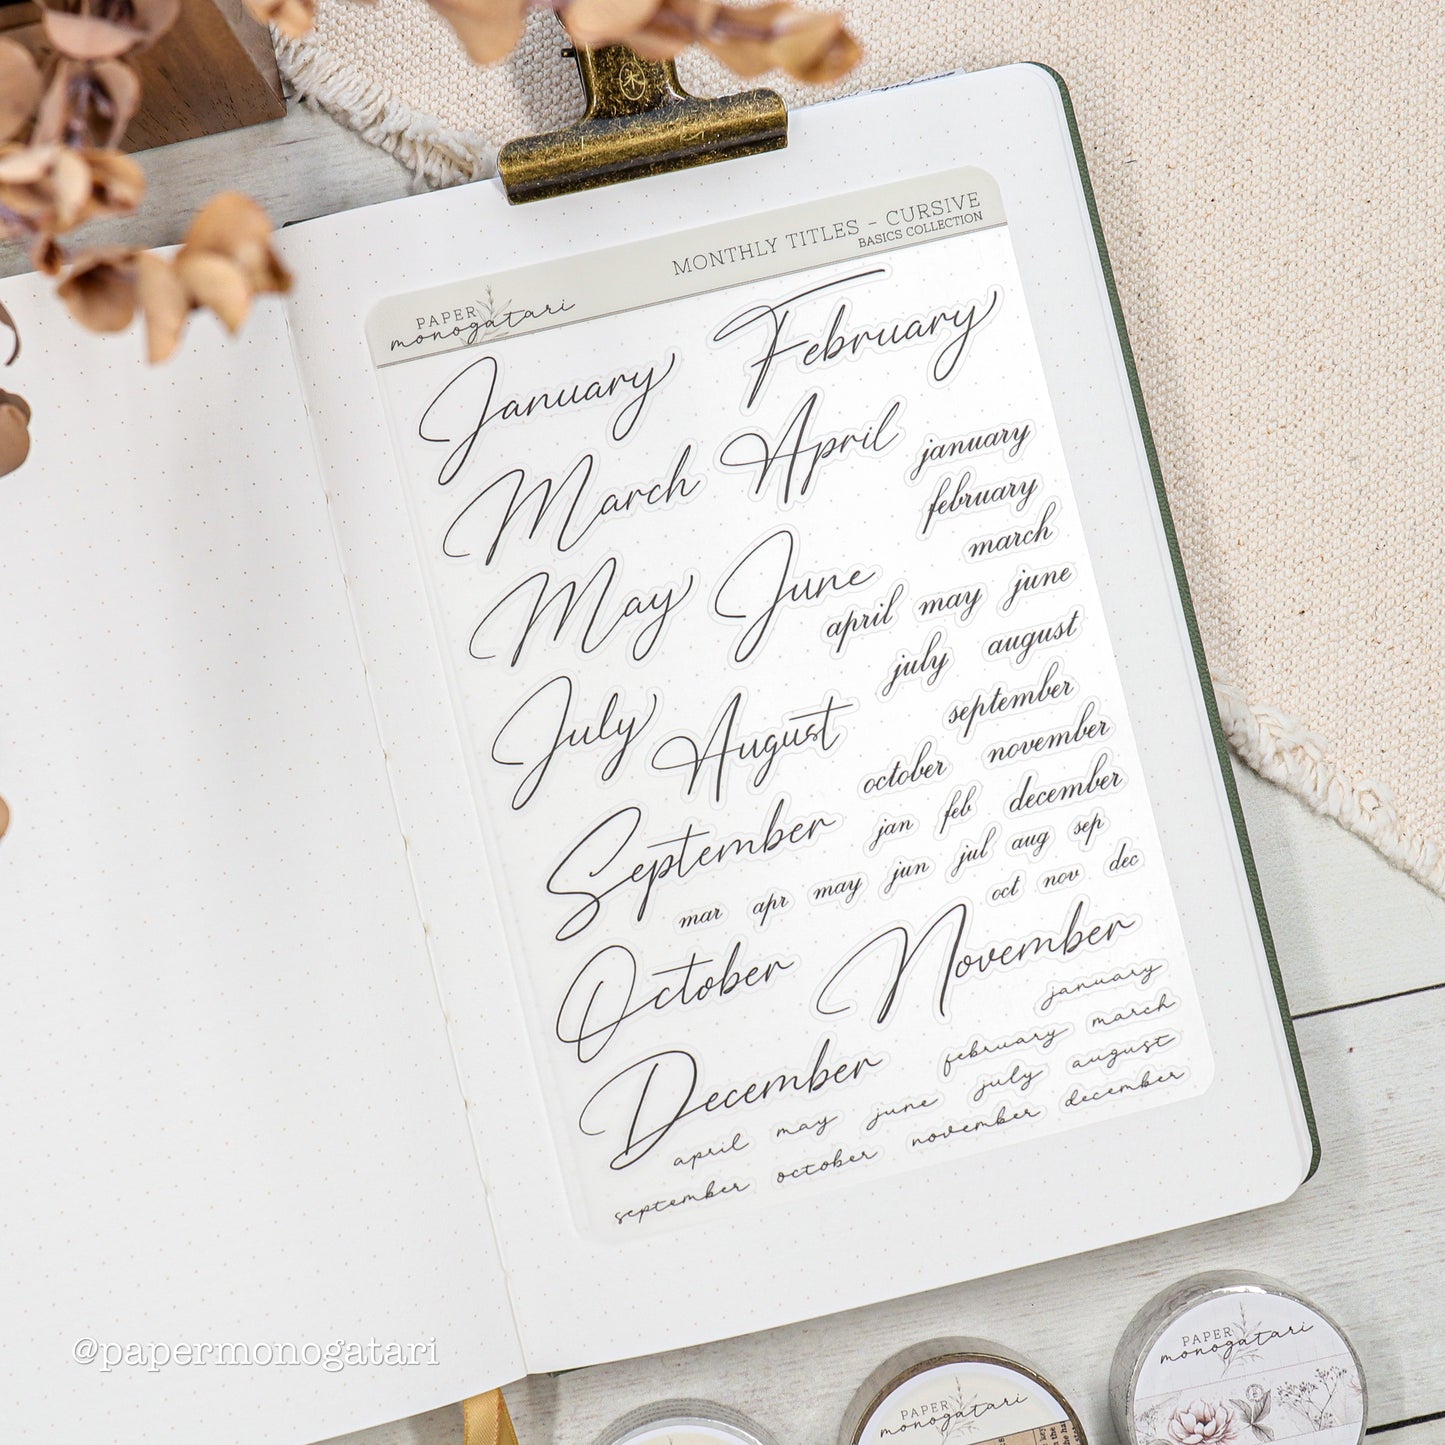 MONTHLY TITLES - CURSIVE
BASICS COLLECTION
PAPER
monogatari
January February
March April
january
february
march
May June
april may june
july august
July August
september
october november
September
jan feb december
mar apr may jun jul aug sep
oct nov dec
October November
january
february march
December
april may june july august
september october november december
@papermonogatari
PAPER
monogatari
PAPER
monogatari